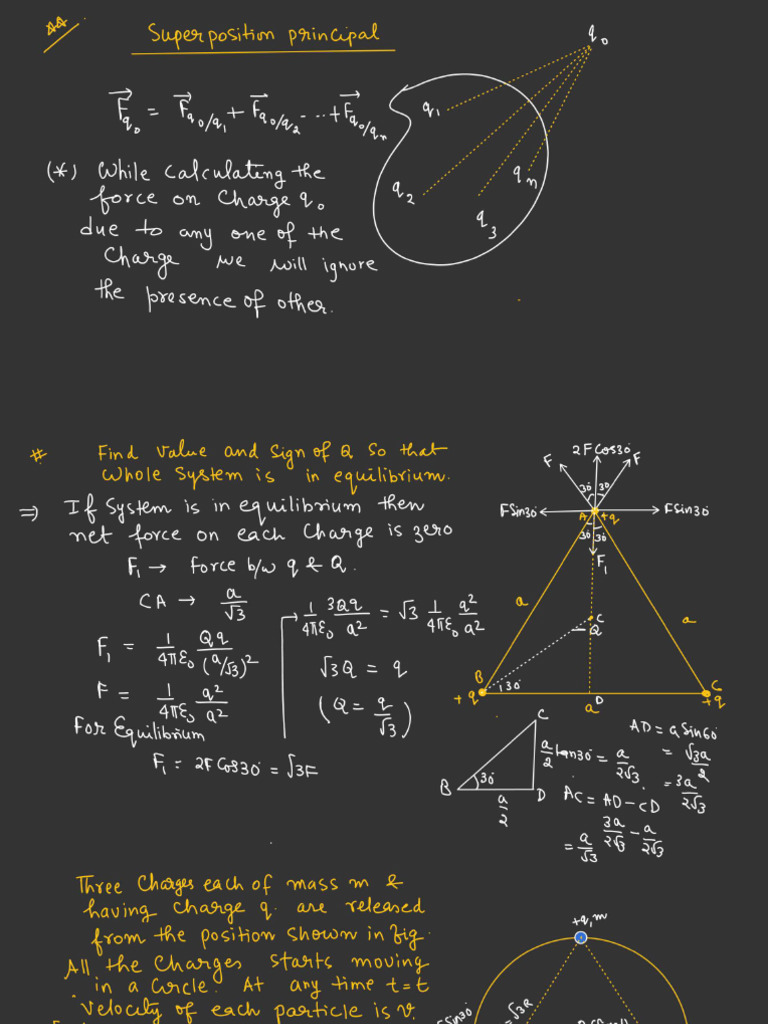 Superposition principal
q0
F⃗q0 = F⃗q0/q1 + F⃗q0/q2 ... + F⃗q0/qn
q1
q2
q3
qn
(*) While calculating the
force on Charge q0
due to any one of the
Charge we will ignore
the presence of other.
# Find value and sign of Q so that
whole System is in equilibrium.
⇒ If System is in equilibrium then
net force on each Charge is zero
F1 → force b/w q & Q.
CA → a/√3
F1 = 1/4πε0 Qq/(a/√3)²
F = 1/4πε0 q²/a²
For Equilibrium
F1 = 2F Cos30 = √3F
→ 1/4πε0 3Qq/a² = √3 1/4πε0 q²/a²
√3Q = q
(Q = q/√3)
2FCos30
F
F
30 30
FSin30
A
+q
FSin30
30 30
F1
a
a
C
-Q
B
+q
30
D
a
C
+q
C
B
30
D
a/2
a/2 tan30 = a/2√3
AD = a Sin60
= √3a/2
= 3a/2√3
AC = AD - CD
3a/2√3 - a/2√3
= a/√3
Three Charges each of mass m &
having charge q. are released
from the position shown in fig.
All the Charges starts moving
in a Circle. At any time t=t
velocity of each particle is v.
+q, m
√3R